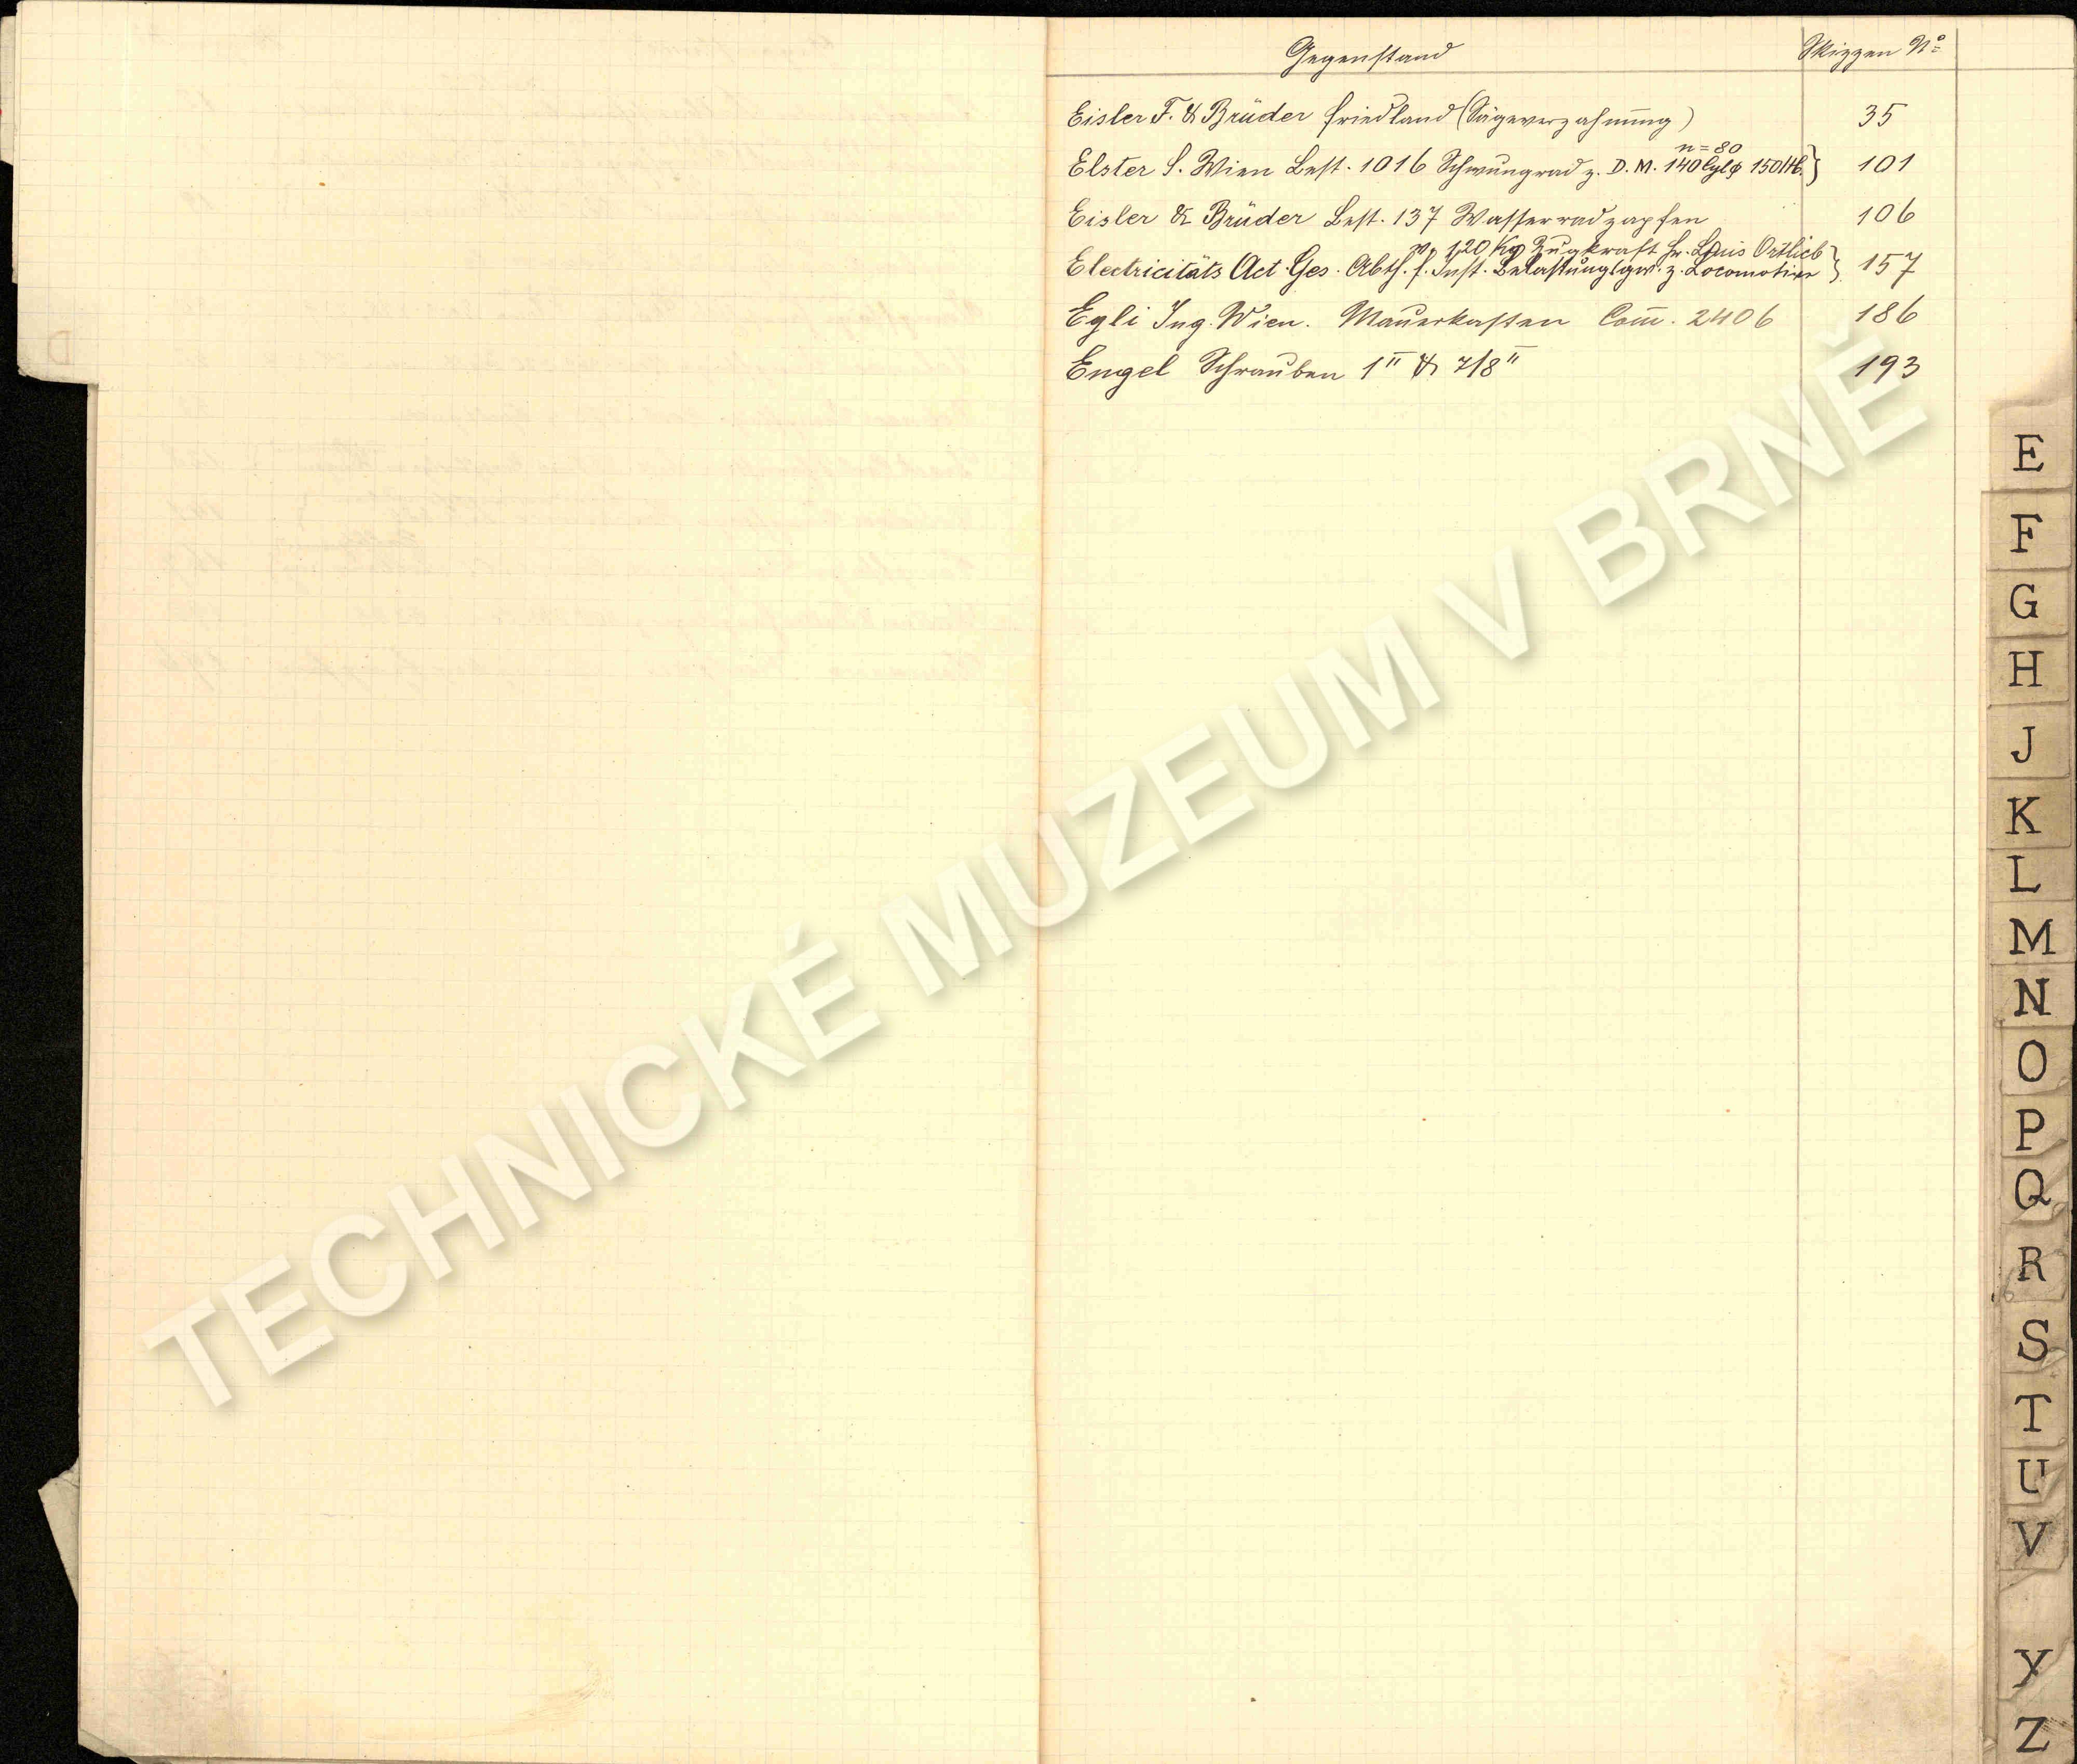 Gegenstand Skizzen No
Eisler F. & Brüder Friedland (Sägeverzahnung) 35
n=80
Elster S. Wien Best. 1016 Schwungrad z. D. M. 140 Cylφ 150 Hb. } 101
Eisler & Brüder Best. 137 Wasserradzapfen 106
v. 120 Kg Zugkraft Hr. Louis Ortlieb
Electricitäts Act. Ges. Abth. f. Inst. Belastungsgw. z. Locomotive } 157
Egli Ing. Wien. Mauerkasten Com̅. 2406 186
Engel Schrauben 1" & 7/8" 193
D
E
F
G
H
J
K
L
M
N
O
P
Q
R
S
T
U
V
Y
Z
TECHNICKÉ MUZEUM V BRNĚ